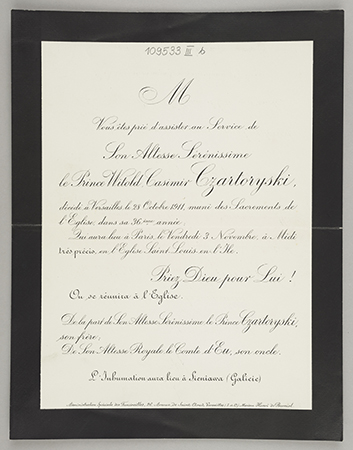 109533 III b
M
Vous êtes prié d'assister au Service de
Son Altesse Sérénissime
le Prince Witold Casimir Czartoryski,
décédé à Versailles le 28 Octobre 1911, muni des Sacrements de
l'Eglise, dans sa 36ème année.
Qui aura lieu à Paris, le Vendredi 3 Novembre, à Midi
très précis, en l'Eglise Saint Louis en l'Ile.
Priez Dieu pour Lui !
On se réunira à l'Eglise.
De la part de Son Altesse Sérénissime le Prince Czartoryski,
son frère,
De Son Altesse Royale le Comte d'Eu, son oncle.
L'Inhumation aura lieu à Sieniawa (Galicie)
Administration Générale des Funérailles,